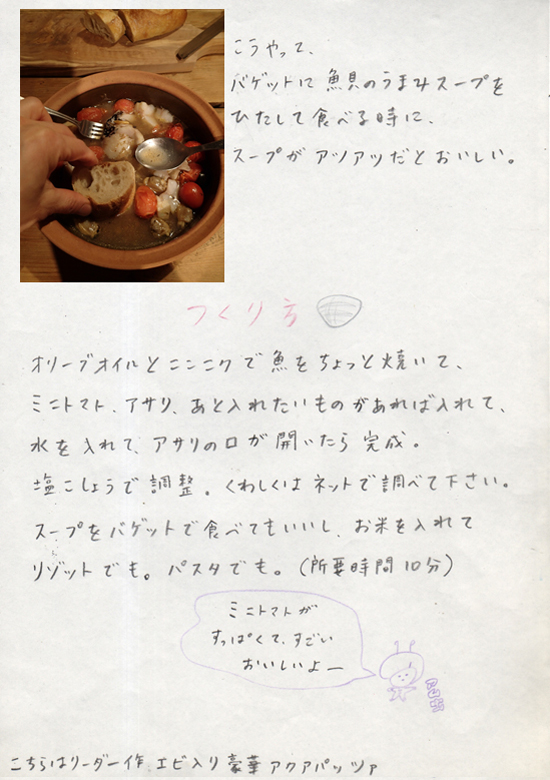 こうやって、
バゲットに魚貝のうまみスープを
ひたして食べる時に、
スープがアツアツだとおいしい。
つくり方
オリーブオイルとニンニクで魚をちょっと焼いて、
ミニトマト、アサリ、あと入れたいものがあれば入れて、
水を入れて、アサリの口が開いたら完成。
塩こしょうで調整。くわしくはネットで調べて下さい。
スープをバゲットで食べてもいいし、お米を入れて
リゾットでも。パスタでも。(所要時間10分)
ミニトマトが
すっぱくて、すごい
おいしいよー
こちらはリーダー作 エビ入り豪華アクアパッツァ